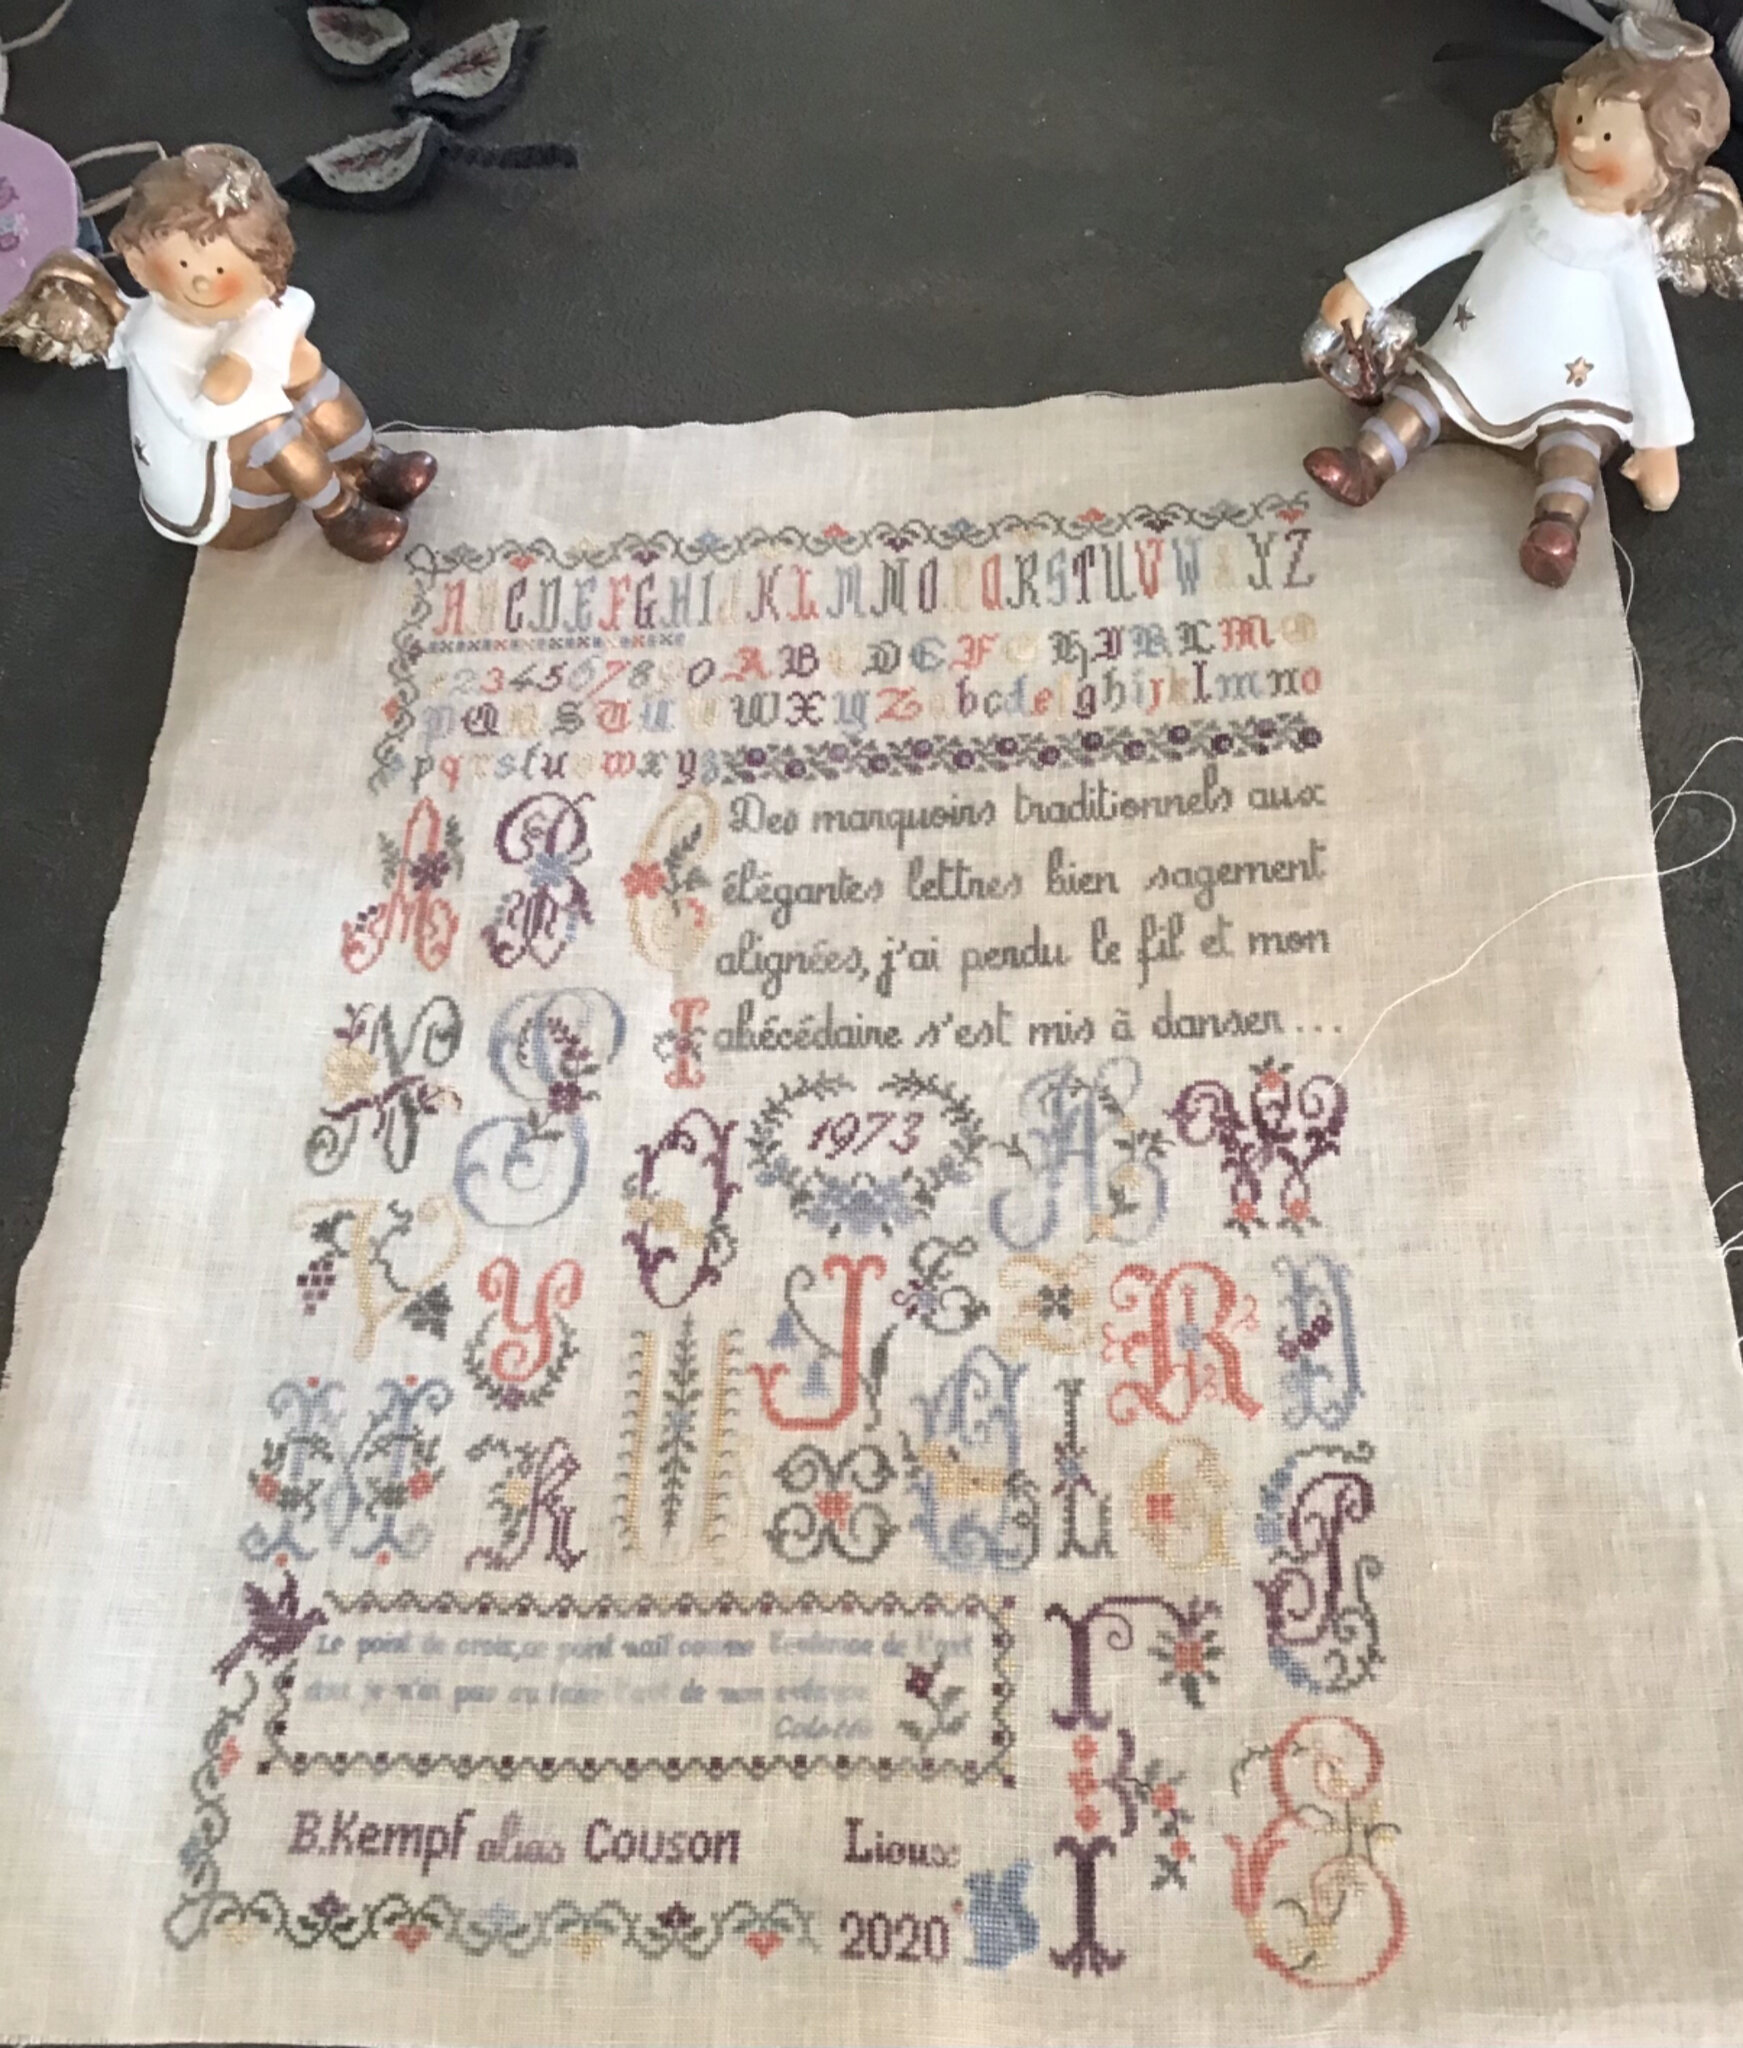 A B C D E F G H I J K L M N O P Q R S T U V W X Y Z
1 2 3 4 5 6 7 8 9 0 A B C D E F G H I K L M O
P Q R S T U V W X Y Z a b c d e f g h i j k l m n o
p q r s t u v w x y z
Des marquoirs traditionnels aux
élégantes lettres bien sagement
alignées, j'ai perdu le fil et mon
abécédaire s'est mis à danser...
A B C
N S I
O
1973
A W
V Y J E Z R D
M K U X Q L G
T
Le point de croix, ce point naïf comme l'enfance de l'art
dont je n'ai pas su faire l'art de mon enfance
Colette
F
B.Kempf alias Couson
Lioux
2020
P S